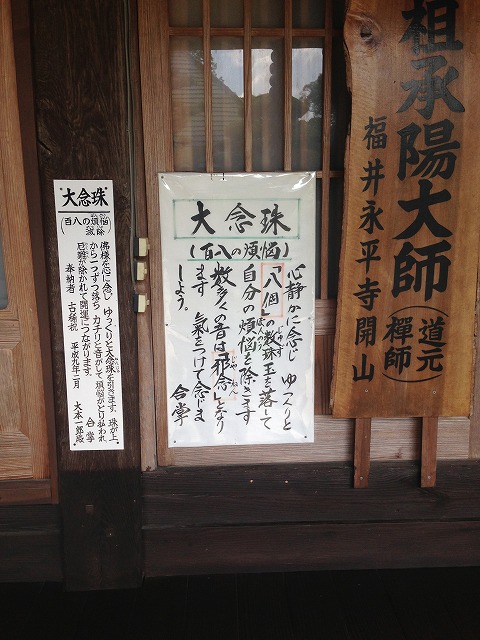 祖承陽大師
(道元
禪師)
福井永平寺開山
大念珠
(百八の煩悩)
心静かに念じ ゆっくりと
「八個」の数珠玉を落して
自分の煩悩を除きます
ぼんのう
数多くの音は邪念となり
じゃねん
ます 氣をつけて念じま
しょう。 合掌
"大念珠"
(百八の煩悩滅除)
佛様を心に念じ ゆっくりと大念珠を引きます。珠が上
から一つずつ落ち カチリと音がして 煩悩がとり払われ
厄難が除かれて開運につながります。 合掌
奉納者 古稀祝 平成九年二月 大本一郎殿